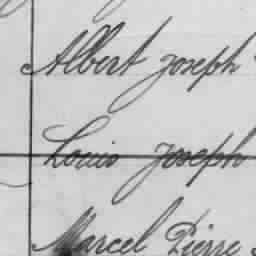 Albert Joseph
Louis Joseph
Marcel Pierre